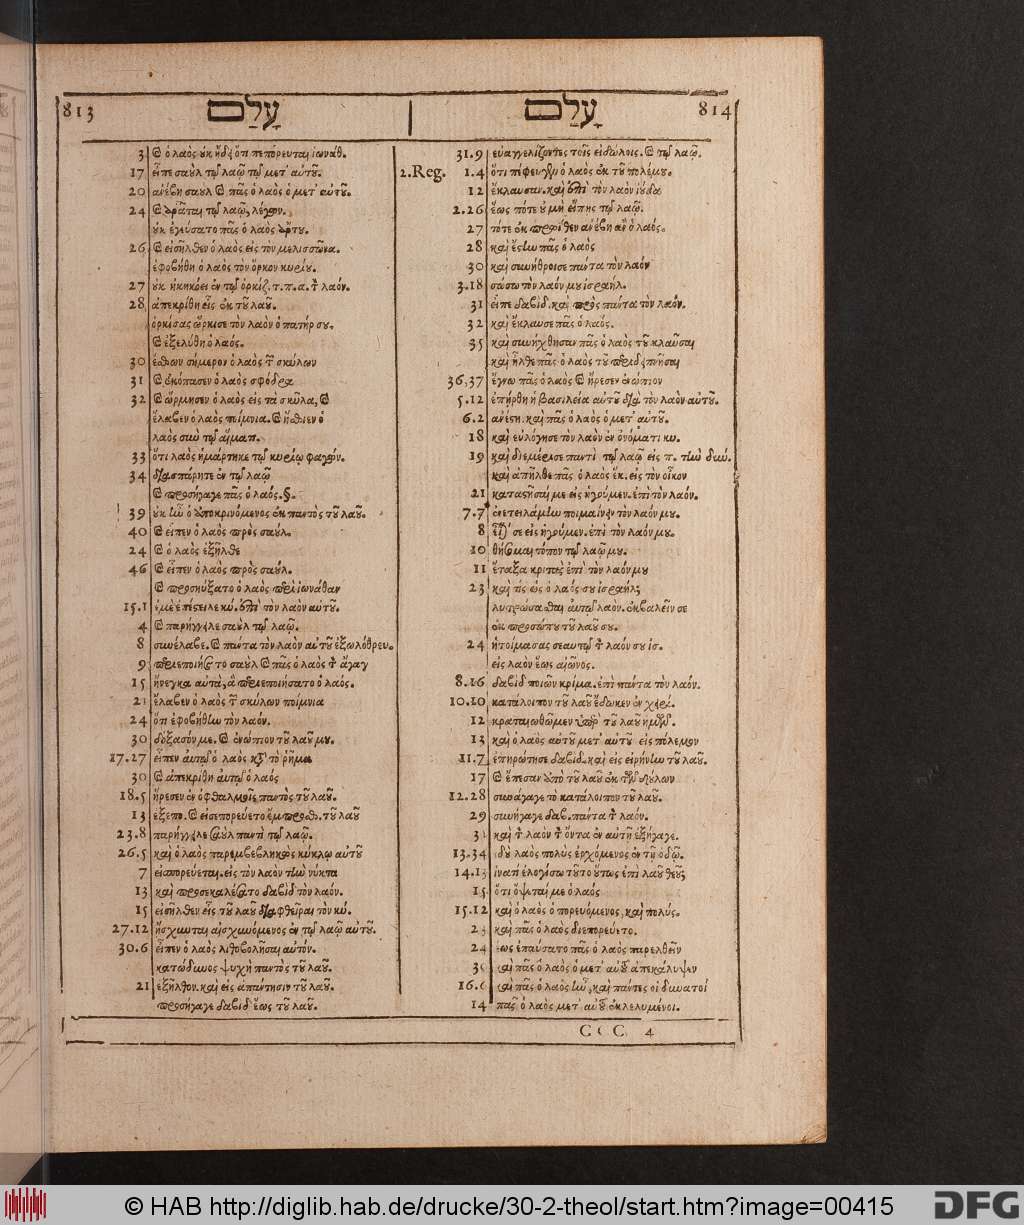 813 עָלַם
3 ὁ λαὸς οὐκ ᾔδει ὅτι πεπόρευται ἰωνάθ.
17 εἶπε σαὺλ τῷ λαῷ τῷ μετ' αὐτοῦ.
20 ἀνέβη σαυλ πᾶς ὁ λαὸς ὁ μετ' αὐτοῦ.
24 ἀρᾶται τῷ λαῷ, λέγων.
οὐκ ἐγεύσατο πᾶς ὁ λαὸς ἄρτου.
26 εἰσῆλθεν ὁ λαὸς εἰς τὸν μελισσῶνα.
ἐφοβήθη ὁ λαὸς τὸν ὅρκον κυρίου.
27 οὐκ ἠκηκόει ἐν τῷ ὁρκίζ. τ. π. α. τὸν λαόν.
28 ἀπεκρίθη εἷς ἐκ τοῦ λαοῦ.
ὁρκίσας ὥρκισε τὸν λαὸν ὁ πατήρ σου.
ἐξελύθη ὁ λαός.
30 ἔσθων σήμερον ὁ λαὸς τῶν σκύλων
31 ἐκόπασεν ὁ λαὸς σφόδρα
32 ὥρμησεν ὁ λαὸς εἰς τὰ σκῦλα,
ἔλαβεν ὁ λαὸς ποίμνια. ἤσθιεν ὁ
λαὸς σὺν τῷ αἵματι.
33 ὅτι λαὸς ἡμάρτηκε τῷ κυρίῳ φαγών.
34 διασπάρητε ἐν τῷ λαῷ
προσήγαγε πᾶς ὁ λαός. §.
39 οὐκ ἦν ὁ ἀποκρινόμενος ἐκ παντὸς τοῦ λαοῦ.
40 εἶπεν ὁ λαὸς πρὸς σαύλ.
24 ὁ λαὸς ἐξῆλθε
46 εἶπεν ὁ λαὸς πρὸς σαύλ.
προσηύξατο ὁ λαὸς περὶ ἰωνάθαν
15.1 ἐμὲ ἀπέστειλε κύ. ἐπὶ τὸν λαὸν αὐτοῦ.
4 παρήγγειλε σαυλ τῷ λαῷ.
8 συνέλαβε. πάντα τὸν λαὸν αὐτοῦ ἐξωλόθρευ.
9 περιεποιήσατο σαυλ πᾶς ὁ λαὸς τὸν ἄγαγ
15 ἤνεγκα αὐτὰ, ἃ περιεποιήσατο ὁ λαός.
21 ἔλαβεν ὁ λαὸς τῶν σκύλων ποίμνια
24 ὅτι ἐφοβήθην τὸν λαόν.
30 δόξασόν με. ἐνώπιον τοῦ λαοῦ μου.
17.27 εἶπεν αὐτῷ ὁ λαὸς κατὰ τὸ ῥῆμα
30 ἀπεκρίθη αὐτῷ ὁ λαός
18.5 ἤρεσεν ἐν ὀφθαλμοῖς παντὸς τοῦ λαοῦ.
13 ἐξεπο. εἰσεπορεύετο ἔμπροσθ. τοῦ λαοῦ
23.8 παρήγγειλε σαυλ παντὶ τῷ λαῷ.
26.5 καὶ ὁ λαὸς παρεμβεβληκὼς κύκλῳ αὐτοῦ
7 εἰσπορεύεται. εἰς τὸν λαὸν τὴν νύκτα
13 καὶ προσεκαλέσατο δαβὶδ τὸν λαόν.
15 εἰσῆλθεν εἷς τοῦ λαοῦ διαφθεῖραι τὸν κύ.
27.12 ᾔσχυνται αἰσχυνόμενος ἐν τῷ λαῷ αὐτοῦ.
30.6 εἶπεν ὁ λαὸς λιθοβολῆσαι αὐτόν.
κατώδυνος ψυχὴ παντὸς τοῦ λαοῦ.
21 ἐξῆλθον. καὶ εἰς ἀπάντησιν τοῦ λαοῦ.
προσήγαγε δαβὶδ ἕως τοῦ λαοῦ.
עָלַם 814
31.9 εὐαγγελίζοντες τοῖς εἰδώλοις. τῷ λαῷ.
2.Reg. 1.4 ὅτι πέφευγεν ὁ λαὸς ἐκ τοῦ πολέμου.
12 ἔκλαυσαν. καὶ ἐπὶ τὸν λαὸν ἰούδα
2.26 ἕως πότε οὐ μὴ εἴπῃς τῷ λαῷ.
27 τότε ἐκ πρωΐθεν ἀνέβη ἂν ὁ λαός.
28 καὶ ἔστη πᾶς ὁ λαός
30 καὶ συνήθροισε πάντα τὸν λαόν
3.18 σώσω τὸν λαόν μου ἰσραήλ.
31 εἶπε δαβίδ. καὶ πρὸς πάντα τὸν λαόν.
32 καὶ ἔκλαυσε πᾶς ὁ λαός.
35 καὶ συνήχθησαν πᾶς ὁ λαὸς τοῦ κλαῦσαι
καὶ ἦλθε πᾶς ὁ λαὸς τοῦ περιδειπνῆσαι
36,37 ἔγνω πᾶς ὁ λαὸς ἤρεσεν ἐνώπιον
5.12 ἐπήρθη ἡ βασιλεία αὐτοῦ διὰ τὸν λαὸν αὐτοῦ.
6.2 ἀνέστη. καὶ πᾶς ὁ λαὸς ὁ μετ' αὐτοῦ.
18 καὶ εὐλόγησε τὸν λαὸν ἐν ὀνόματι κυ.
19 καὶ διεμέρισε παντὶ τῷ λαῷ εἰς π. τὴν δύν.
καὶ ἀπῆλθε πᾶς ὁ λαὸς ἕκ. εἰς τὸν οἶκον
21 καταστῆσαί με εἰς ἡγούμεν. ἐπὶ τὸν λαόν.
7.7 ἐνετειλάμην ποιμαίνειν τὸν λαόν μου.
8 εἶναί σε εἰς ἡγούμεν. ἐπὶ τὸν λαόν μου.
10 θήσομαι τόπον τῷ λαῷ μου.
11 ἔταξα κριτὰς ἐπὶ τὸν λαόν μου
23 καὶ τίς ὡς ὁ λαός σου ἰσραήλ;
λυτρώσασθαι αὐτῷ λαόν. ἐκβαλεῖν σε
ἐκ προσώπου τοῦ λαοῦ σου.
24 ἡτοίμασας σεαυτῷ τὸν λαόν σου ἰσ.
εἰς λαὸν ἕως αἰῶνος.
8.16 δαβὶδ ποιῶν κρίμα. ἐπὶ πάντα τὸν λαόν.
10.10 κατάλοιπον τοῦ λαοῦ ἔδωκεν ἐν χειρί.
12 κραταιωθῶμεν ὑπὲρ τοῦ λαοῦ ἡμῶν.
13 καὶ ὁ λαὸς αὐτοῦ μετ' αὐτοῦ εἰς πόλεμον
11.7 ἐπηρώτησε δαβὶδ. καὶ εἰς εἰρήνην τοῦ λαοῦ.
17 ἔπεσαν ἀπὸ τοῦ λαοῦ ἐκ τῶν δούλων
12.28 συνάγαγε τὸ κατάλοιπον τοῦ λαοῦ.
29 συνήγαγε δαβ. πάντα τὸν λαόν.
31 καὶ τὸν λαὸν τὸν ὄντα ἐν αὐτῇ ἐξήγαγε.
13.34 ἰδοὺ λαὸς πολὺς ἐρχόμενος ἐν τῇ ὁδῷ.
14.13 ἱνατί ἐλογίσω τοῦτο οὕτως ἐπὶ λαοῦ θεοῦ;
15 ὅτι ὄψεταί με ὁ λαός
15.12 καὶ ὁ λαὸς ὁ πορευόμενος, καὶ πολύς.
23 καὶ πᾶς ὁ λαὸς διεπορεύετο.
24 ἕως ἐπαύσατο πᾶς ὁ λαὸς παρελθεῖν
30 καὶ πᾶς ὁ λαὸς ὁ μετ' αὐτοῦ ἀπεκάλυψεν
16.6 καὶ πᾶς ὁ λαὸς ἦν, καὶ πάντες οἱ δυνατοί
14 πᾶς ὁ λαὸς μετ' αὐτοῦ ἐκλελυμένοι.
CCC 4
© HAB http://diglib.hab.de/drucke/30-2-theol/start.htm?image=00415
DFG